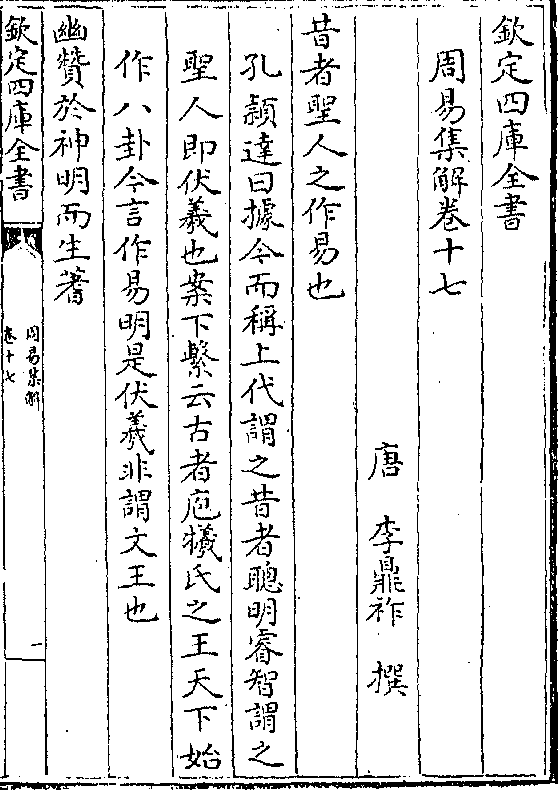 欽定四庫全書
周易集解卷十七
唐 李鼎祚 撰
昔者聖人之作易也
孔穎達曰據今而稱上代謂之昔者聰明睿智謂之
聖人即伏羲也案下繫云古者庖犧氏之王天下始
作八卦今言作易明是伏羲非謂文王也
幽贊於神明而生蓍
欽定四庫全書
周易集解
卷十七
一